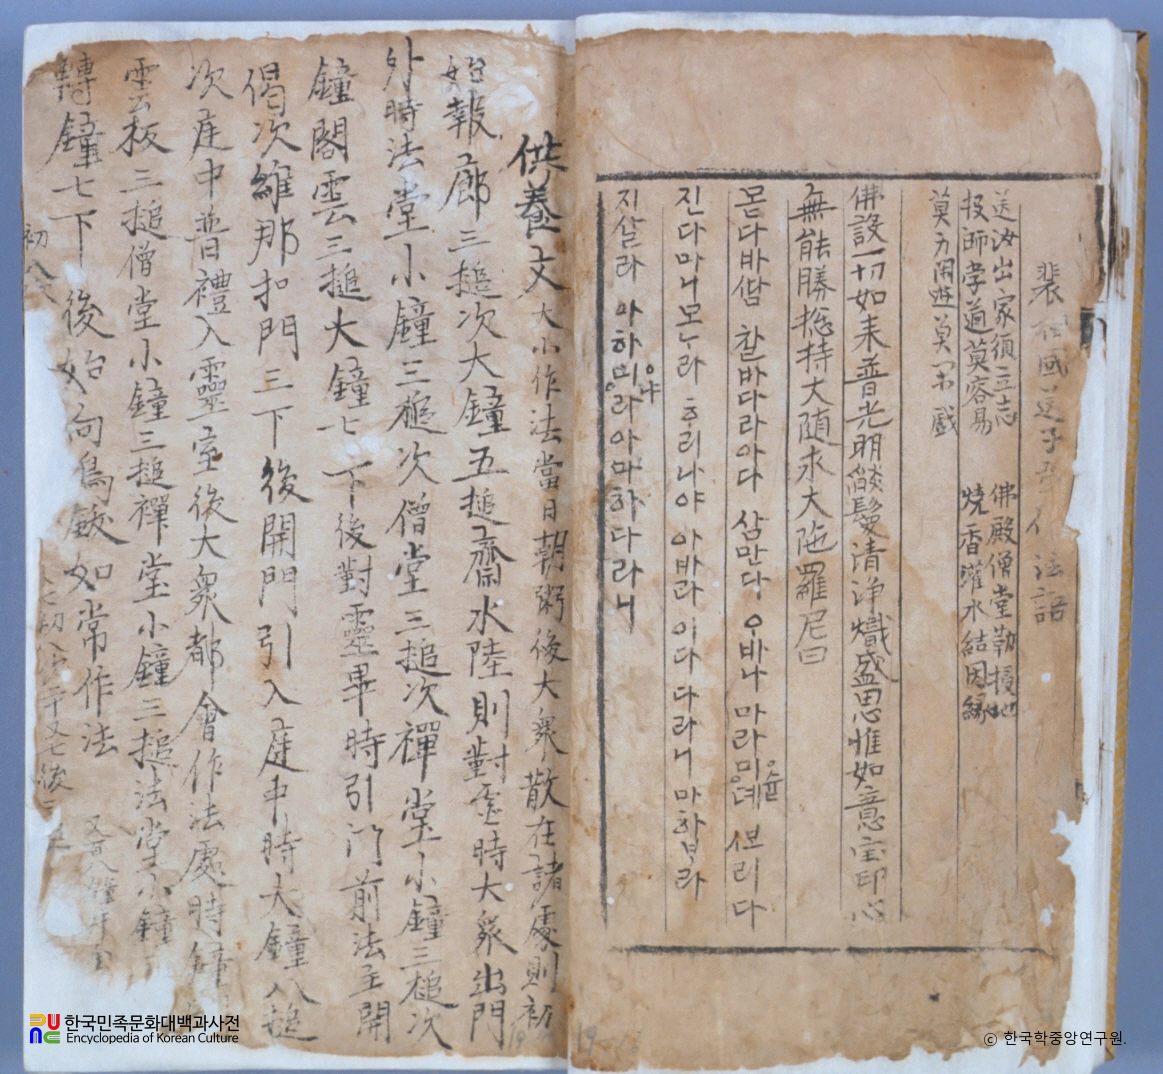 裴相國送子出家法語
送汝出家須立志
投師学道莫容易
燒香灌水結因緣
佛殿僧堂勤掃地
莫
戱
佛說一切如来普光明燄鬘清淨熾盛思惟如意宝印心
無能勝捴持大随求大陁羅尼曰
몯다바 찰바다라아다 삼만다 우바나 마라미 뎨 보리다
진다마니모누라 후리나야 아바라이다다라니 마합라
지살라 아하 라아마하다라니
供養文 大小作法當日朝粥後大衆散在諸處則初
始報廊三搥次大鐘五搥齋水陸則對靈時大衆出門
外時法堂小鐘三搥次僧堂三搥次禪堂小鐘三搥次
鐘閣雲三搥大鐘七下後對靈畢時引門前法主開
偈次維那扣門三下後開門引入庭中時大鐘八搥
次庭中普禮入靈室後大衆都會作法處時鐘
雲板三搥僧堂小鐘三搥禪堂小鐘三搥法堂小鐘
轉鐘七下後始向鳥鈸如常作法
한국민족문화대백과사전
Encyclopedia of Korean Culture
ⓒ 한국학중앙연구원.